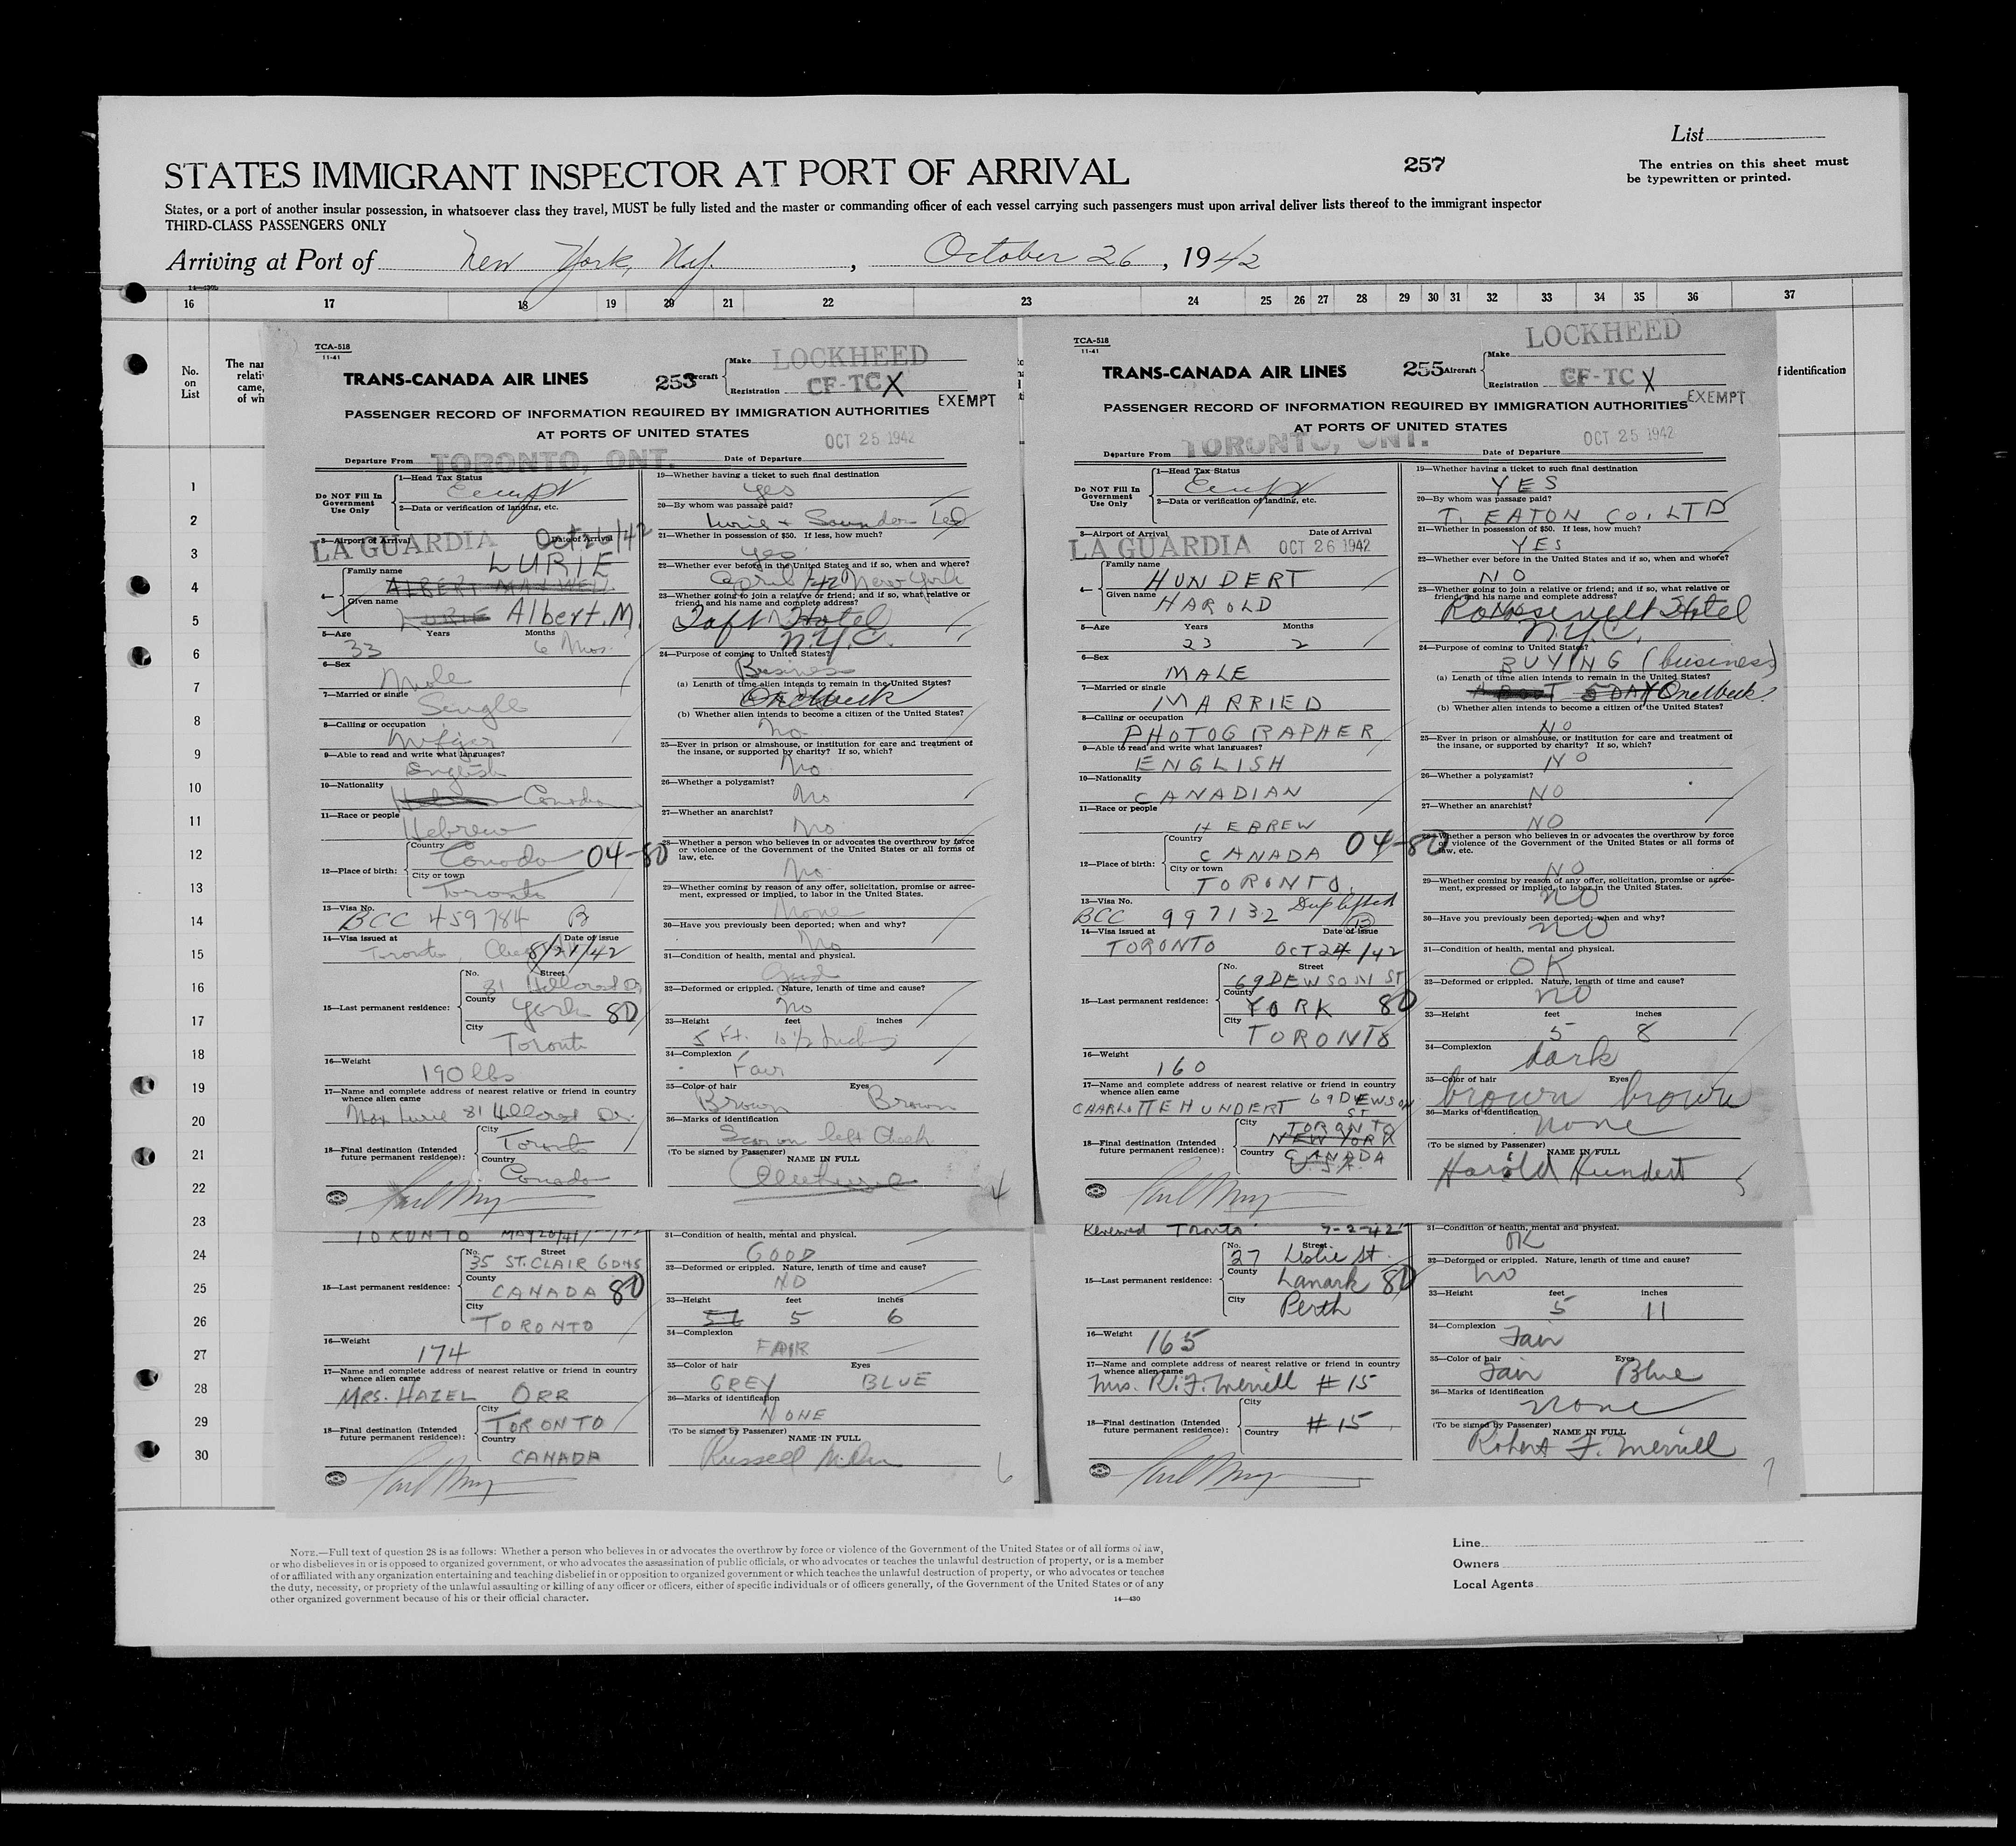 List
STATES IMMIGRANT INSPECTOR AT PORT OF ARRIVAL
257
The entries on this sheet must
be typewritten or printed.
States, or a port of another insular possession, in whatsoever class they travel, MUST be fully listed and the master or commanding officer of each vessel carrying such passengers must upon arrival deliver lists thereof to the immigrant inspector
THIRD-CLASS PASSENGERS ONLY
Arriving at Port of New York, N.Y. , October 26 , 1942
16 17 18 19 20 21 22 23 24 25 26 27 28 29 30 31 32 33 34 35 36 37
No.
on
List
The nar
relativ
came,
of wh
f identification
1
2
3
4
5
6
7
8
9
10
11
12
13
14
15
16
17
18
19
20
21
22
23
24
25
26
27
28
29
30
TCA-518
11-41
TRANS-CANADA AIR LINES
253
Aircraft
Make LOCKHEED
Registration CF-TC X
EXEMPT
PASSENGER RECORD OF INFORMATION REQUIRED BY IMMIGRATION AUTHORITIES
AT PORTS OF UNITED STATES
OCT 25 1942
Departure From TORONTO, ONT. Date of Departure
Do NOT Fill In
Government
Use Only
1—Head Tax Status
2—Data or verification of landing, etc.
3—Airport of Arrival Date of Arrival
LA GUARDIA Oct 26/42
4— Family name LURIE
ALBERT MAXWELL
Given name LURIE Albert. M.
5—Age Years Months
33 6 Mos.
6—Sex
Male
7—Married or single
Single
8—Calling or occupation
9—Able to read and write what languages?
English
10—Nationality
Canadian
11—Race or people
Hebrew
12—Place of birth: Country
Canada 04-80
City or town
Toronto
13—Visa No.
BCC 459784 B
14—Visa issued at Date of issue
Toronto, 8/21/42
15—Last permanent residence: No. Street
81 Hillcrest Dr
County
York 80
City
Toronto
16—Weight
190 lbs
17—Name and complete address of nearest relative or friend in country
whence alien came
Max Lurie 81 Hillcrest Dr.
18—Final destination (Intended
future permanent residence): City
Toronto
Country
Canada
19—Whether having a ticket to such final destination
yes
20—By whom was passage paid?
Lurie + Saunders Ltd
21—Whether in possession of $50. If less, how much?
yes
22—Whether ever before in the United States and if so, when and where?
April /42 New York
23—Whether going to join a relative or friend; and if so, what relative or
friend, and his name and complete address?
Taft Hotel
N.Y.C.
24—Purpose of coming to United States?
Business
(a) Length of time alien intends to remain in the United States?
One Week
(b) Whether alien intends to become a citizen of the United States?
No
25—Ever in prison or almshouse, or institution for care and treatment of
the insane, or supported by charity? If so, which?
No
26—Whether a polygamist?
No
27—Whether an anarchist?
No
28—Whether a person who believes in or advocates the overthrow by force
or violence of the Government of the United States or all forms of
law, etc.
No
29—Whether coming by reason of any offer, solicitation, promise or agree-
ment, expressed or implied, to labor in the United States.
None
30—Have you previously been deported; when and why?
No
31—Condition of health, mental and physical.
Good
32—Deformed or crippled. Nature, length of time and cause?
No
33—Height feet inches
5 Ft. 10 1/2 Inches
34—Complexion
Fair
35—Color of hair Eyes
Brown Brown
36—Marks of identification
Scar on left Cheek
(To be signed by Passenger) NAME IN FULL
4
TCA-518
11-41
TRANS-CANADA AIR LINES
255
Aircraft
Make LOCKHEED
Registration CF-TC X
EXEMPT
PASSENGER RECORD OF INFORMATION REQUIRED BY IMMIGRATION AUTHORITIES
AT PORTS OF UNITED STATES
OCT 25 1942
Departure From TORONTO, ONT. Date of Departure
Do NOT Fill In
Government
Use Only
1—Head Tax Status
2—Data or verification of landing, etc.
3—Airport of Arrival Date of Arrival
LA GUARDIA OCT 26 1942
4— Family name
HUNDERT
Given name
HAROLD
5—Age Years Months
23 2
6—Sex
MALE
7—Married or single
MARRIED
8—Calling or occupation
PHOTOGRAPHER
9—Able to read and write what languages?
ENGLISH
10—Nationality
CANADIAN
11—Race or people
HEBREW
12—Place of birth: Country
CANADA 04-80
City or town
TORONTO.
13—Visa No. Dup lifted
BCC 997132
14—Visa issued at Date of issue
TORONTO OCT 24/42
15—Last permanent residence: No. Street
69 DEWSON ST
County
YORK 80
City
TORONTO
16—Weight
160
17—Name and complete address of nearest relative or friend in country
whence alien came
CHARLOTTE HUNDERT 69 DEWSON
ST
18—Final destination (Intended
future permanent residence): City
TORONTO
NEW YORK
Country CANADA
U.S.A.
19—Whether having a ticket to such final destination
YES
20—By whom was passage paid?
T. EATON CO. LTD
21—Whether in possession of $50. If less, how much?
YES
22—Whether ever before in the United States and if so, when and where?
NO
23—Whether going to join a relative or friend; and if so, what relative or
friend, and his name and complete address?
Roosevelt Hotel
N.Y.C.
24—Purpose of coming to United States?
BUYING (business)
(a) Length of time alien intends to remain in the United States?
ABOUT 5 DAY One Week
(b) Whether alien intends to become a citizen of the United States?
NO
25—Ever in prison or almshouse, or institution for care and treatment of
the insane, or supported by charity? If so, which?
NO
26—Whether a polygamist?
NO
27—Whether an anarchist?
NO
28—Whether a person who believes in or advocates the overthrow by force
or violence of the Government of the United States or all forms of
law, etc.
NO
29—Whether coming by reason of any offer, solicitation, promise or agree-
ment, expressed or implied, to labor in the United States.
no
30—Have you previously been deported; when and why?
no
31—Condition of health, mental and physical.
OK
32—Deformed or crippled. Nature, length of time and cause?
no
33—Height feet inches
5 8
34—Complexion
dark
35—Color of hair Eyes
brown brown
36—Marks of identification
none
(To be signed by Passenger) NAME IN FULL
Harold Hundert
5
TORONTO
15—Last permanent residence: No. Street
35 ST. CLAIR GDNS
County
CANADA 80
City
TORONTO
16—Weight
174
17—Name and complete address of nearest relative or friend in country
whence alien came
MRS. HAZEL ORR
18—Final destination (Intended
future permanent residence): City
TORONTO
Country
CANADA
31—Condition of health, mental and physical.
GOOD
32—Deformed or crippled. Nature, length of time and cause?
NO
33—Height feet inches
5 6
34—Complexion
FAIR
35—Color of hair Eyes
GREY BLUE
36—Marks of identification
NONE
(To be signed by Passenger) NAME IN FULL
Russell
6
Renewed Toronto 7-2-42
15—Last permanent residence: No. Street
27 Leslie St.
County
Lanark 80
City
Perth
16—Weight 165
17—Name and complete address of nearest relative or friend in country
whence alien came
Mrs. R.F. Merrill #15
18—Final destination (Intended
future permanent residence): City
Country #15
31—Condition of health, mental and physical.
OK
32—Deformed or crippled. Nature, length of time and cause?
no
33—Height feet inches
5 11
34—Complexion
Fair
35—Color of hair Eyes
Fair Blue
36—Marks of identification
none
(To be signed by Passenger) NAME IN FULL
Robert F. Merrill
7
NOTE.—Full text of question 28 is as follows: Whether a person who believes in or advocates the overthrow by force or violence of the Government of the United States or of all forms of law,
or who disbelieves in or is opposed to organized government, or who advocates the assassination of public officials, or who advocates or teaches the unlawful destruction of property, or is a member
of or affiliated with any organization entertaining and teaching disbelief in or opposition to organized government or which teaches the unlawful destruction of property, or who advocates or teaches
the duty, necessity, or propriety of the unlawful assaulting or killing of any officer or officers, either of specific individuals or of officers generally, of the Government of the United States or of any
other organized government because of his or their official character.
14—430
Line
Owners
Local Agents